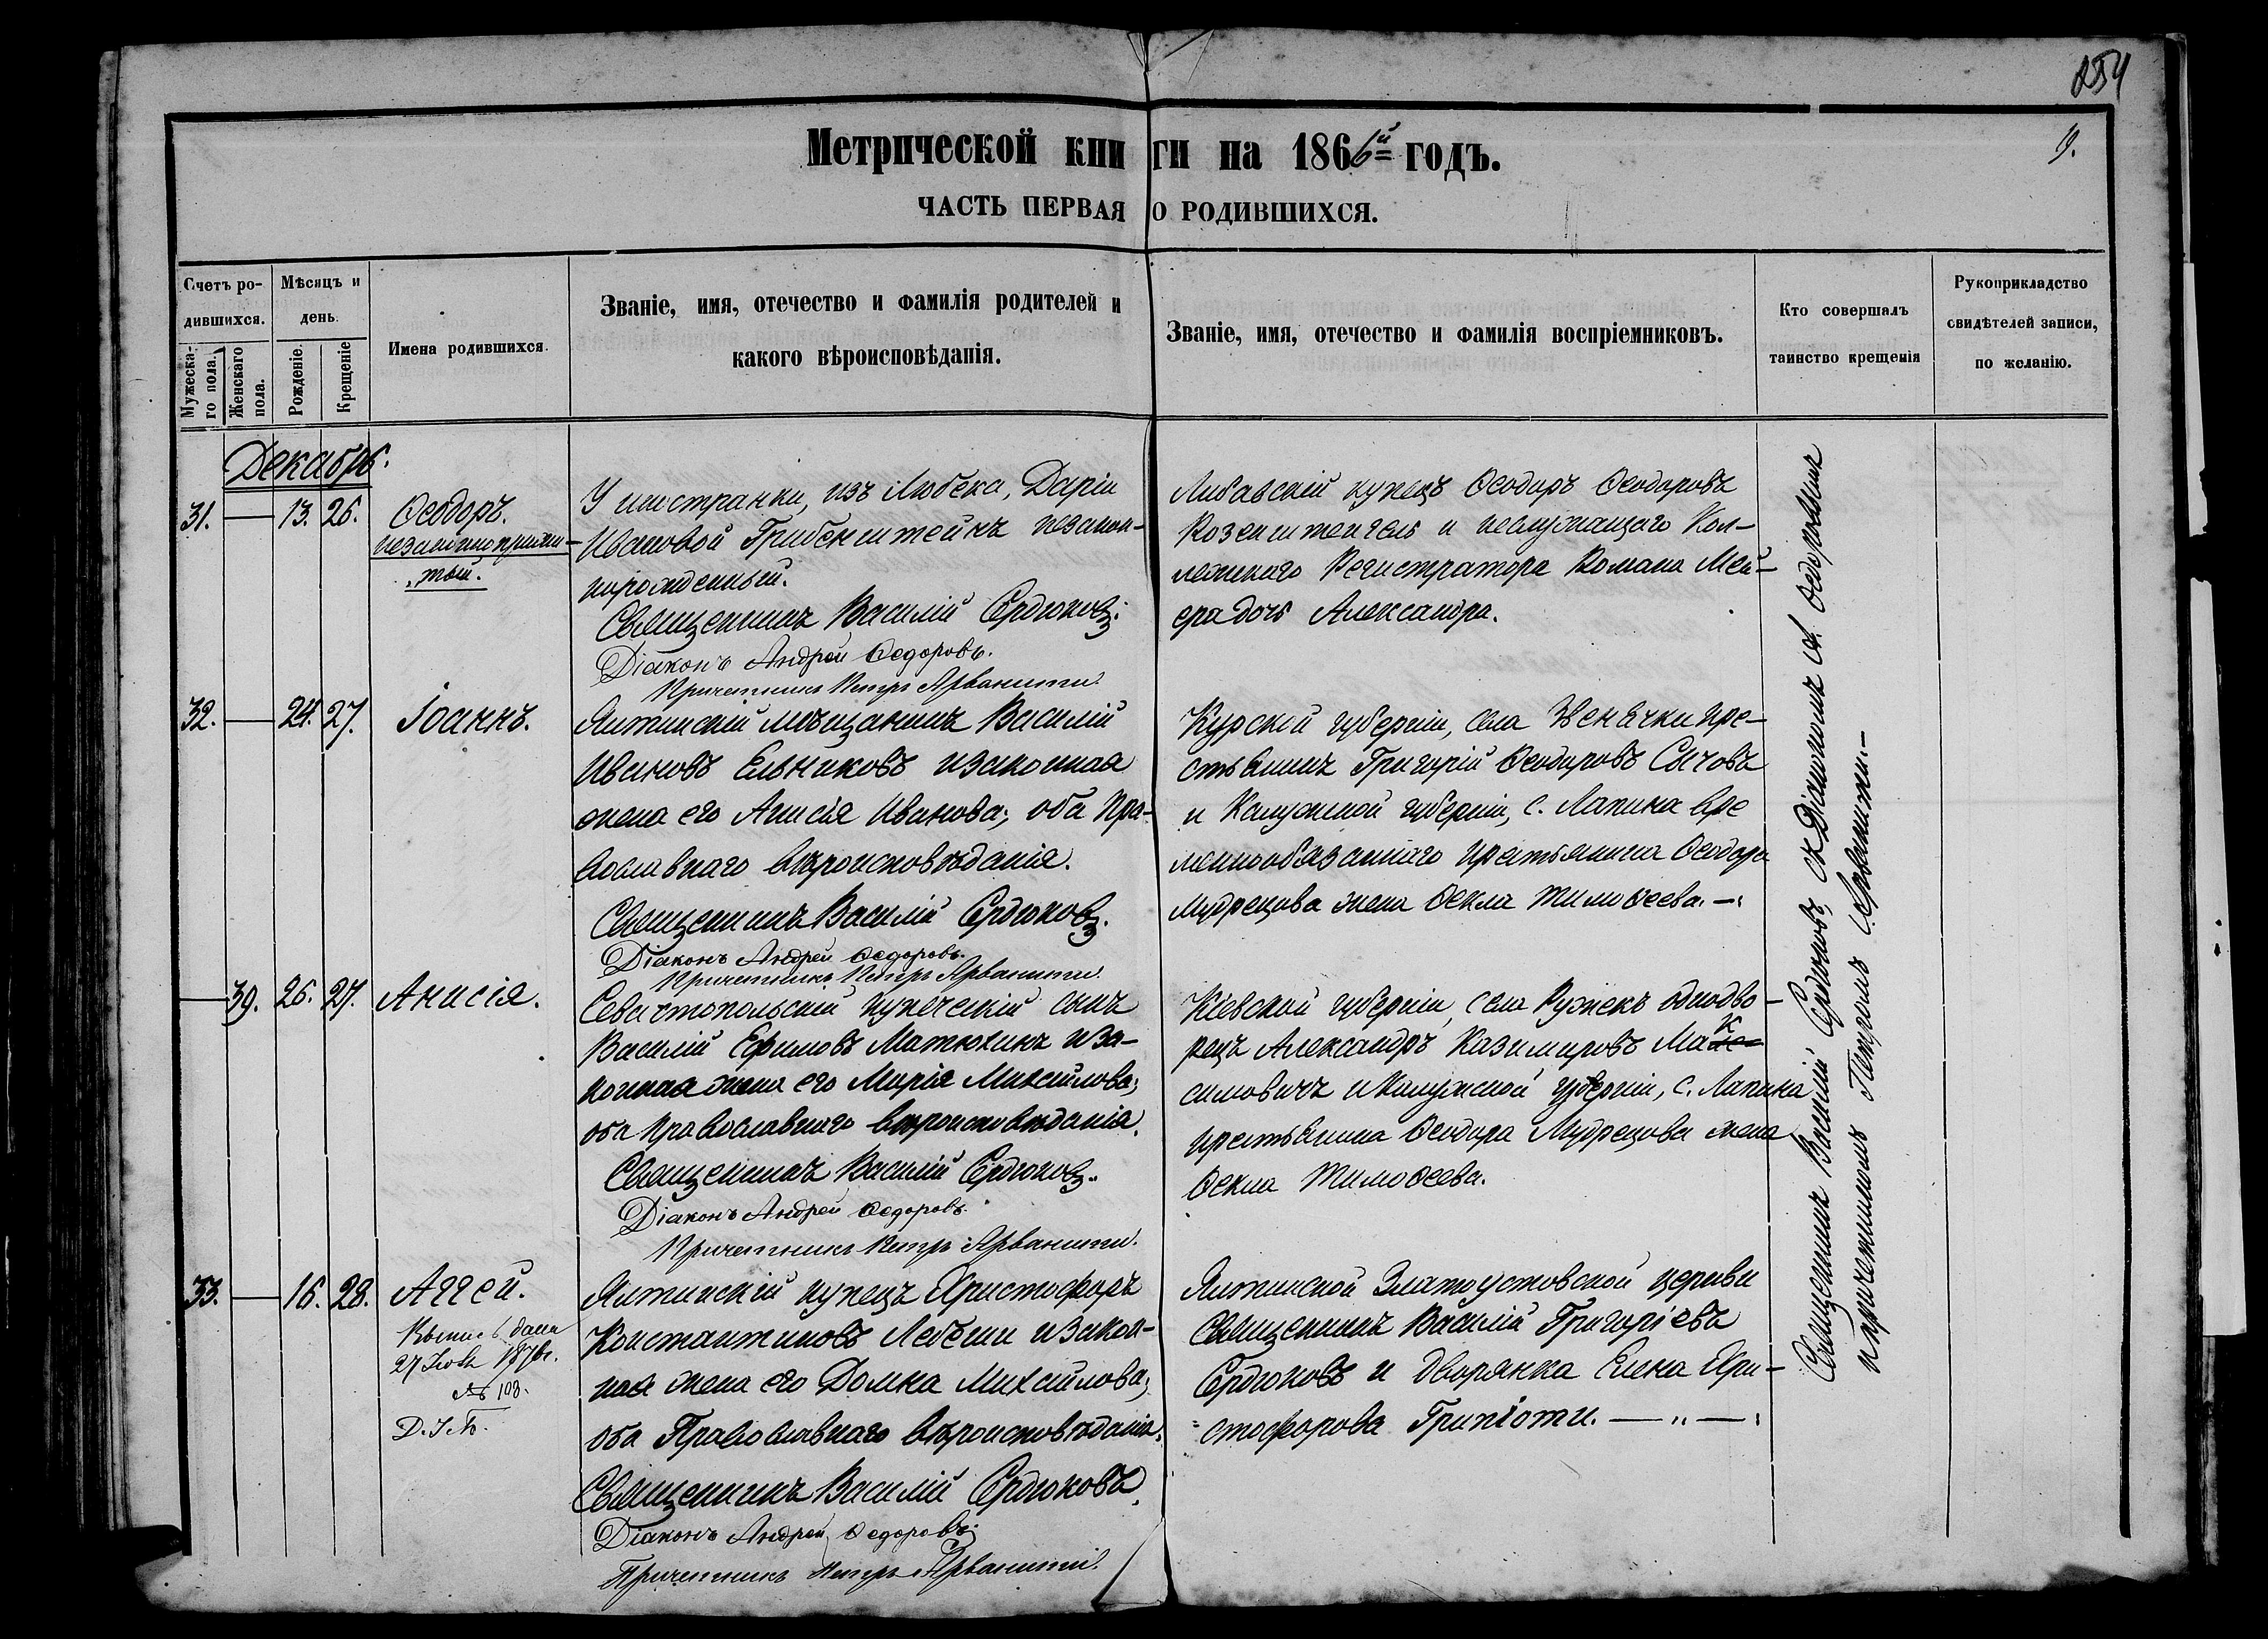 254
9.
Метрической книги на 1866й годъ.
ЧАСТЬ ПЕРВАЯ О РОДИВШИХСЯ.
Счетъ ро-
дившихся.
Мужеска-
го пола.
Женскаго
пола.
Мѣсяцъ и
день.
Рожденіе.
Крещеніе
Имена родившихся.
Званіе, имя, отечество и фамилія родителей и
какого вѣроисповѣданія.
Званіе, имя, отечество и фамилія воспріемниковъ.
Кто совершалъ
таинство крещенія
Рукоприкладство
свидѣтелей записи,
по желанію.
Декабрь.
31. — 13. 26. Ѳеодоръ.
незаконноприжи-
тый.
У иностранки, изъ Любека, Даріи
Ивановой Грибенштейнъ незакон-
норожденный.
Священникъ Василій Сердюковъ.
Діаконъ Андрей Ѳедоровъ.
Причетникъ Петръ Арванити.
Либавскій купецъ Ѳеодоръ Ѳеодоровъ
и неслужащаго Кол-
лежскаго Регистратора Романа Мей-
ера дочь Александра.
32. — 24. 27. Іоаннъ.
Ялтинскій мѣщанинъ Василій
Ивановъ Ельниковъ и законная
жена его Анисія Иванова; оба пра-
вославнаго вѣроисповѣданія.
Священникъ Василій Сердюковъ.
Діаконъ Андрей Ѳедоровъ.
Причетникъ Петръ Арванити.
Курской губерніи, села Звенячки кре-
стьянинъ Григорій Ѳеодоровъ Сычовъ
и Калужской губерніи, с. Лапина вре
меннообязаннаго крестьянина Ѳеодора
Мудрецова жена Ѳекла Тимоѳеева. —
— 39. 26. 27. Анисія.
Севастопольскій купеческій сынъ
Василій Ефимовъ Матюхинъ и за-
конная жена его Марія Михайлова;
оба православнаго вѣроисповѣданія.
Священникъ Василій Сердюковъ.
Діаконъ Андрей Ѳедоровъ.
Причетникъ Петръ Арванити.
Кіевской губерніи, села Ружекъ однодво-
рецъ Александръ Казимировъ Мак
симовичъ и Калужской губерніи, с. Лапина
крестьянина Ѳеодора Мудрецова жена
Ѳекла Тимоѳеева.
33. — 16. 28. Аггей.
дана
27 187 г.
№ 108.
Ялтинскій купецъ Христофоръ
Константиновъ Лебеши и закон-
ная жена его Домна Михайлова;
оба Православнаго вѣроисповѣданія.
Священникъ Василій Сердюковъ.
Діаконъ Андрей Ѳедоровъ.
Причетникъ Петръ Арванити.
Ялтинской Златоустовской церкви
Священникъ Василій Григорьевъ
Сердюковъ и дворянка Елена Хри-
стофорова Грипіоти. — „ —
Священникъ Василій Сердюковъ, съ Діакономъ А. Ѳедоровымъ
и причетникомъ Петромъ Арванити. —